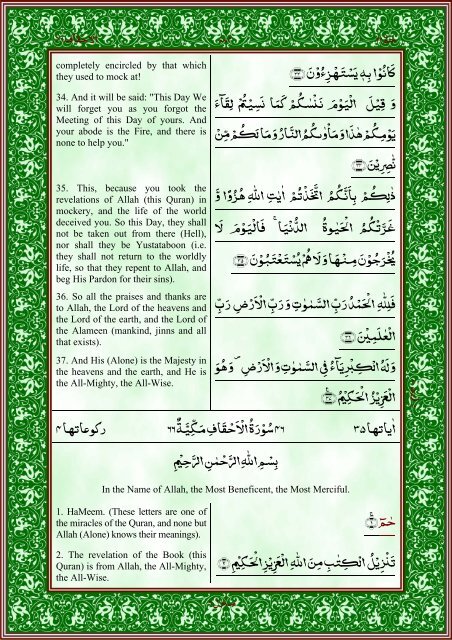 completely encircled by that which
they used to mock at!
كَانُوْا بِهٖ يَسْتَهْزِءُوْنَ ﴿۳۳﴾
34. And it will be said: "This Day We
will forget you as you forgot the
Meeting of this Day of yours. And
your abode is the Fire, and there is
none to help you."
وَ قِيْلَ الْيَوْمَ نَنْسٰىكُمْ كَمَا نَسِيْتُمْ لِقَآءَ
يَوْمِكُمْ هٰذَا وَ مَاْوٰىكُمُ النَّارُ وَ مَا لَكُمْ مِّنْ
نّٰصِرِيْنَ ﴿۳۴﴾
35. This, because you took the
revelations of Allah (this Quran) in
mockery, and the life of the world
deceived you. So this Day, they shall
not be taken out from there (Hell),
nor shall they be Yustataboon (i.e.
they shall not return to the worldly
life, so that they repent to Allah, and
beg His Pardon for their sins).
ذٰلِكُمْ بِاَنَّكُمُ اتَّخَذْتُمْ اٰيٰتِ اللّٰهِ هُزُوًا وَّ
غَرَّتْكُمُ الْحَيٰوةُ الدُّنْيَا ۚ فَالْيَوْمَ لَا
يُخْرَجُوْنَ مِنْهَا وَ لَا هُمْ يُسْتَعْتَبُوْنَ ﴿۳۵﴾
36. So all the praises and thanks are
to Allah, the Lord of the heavens and
the Lord of the earth, and the Lord of
the Alameen (mankind, jinns and all
that exists).
فَلِلّٰهِ الْحَمْدُ رَبِّ السَّمٰوٰتِ وَ رَبِّ الْاَرْضِ رَبِّ
الْعٰلَمِيْنَ ﴿۳۶﴾
37. And His (Alone) is the Majesty in
the heavens and the earth, and He is
the All-Mighty, the All-Wise.
وَ لَهُ الْكِبْرِيَآءُ فِي السَّمٰوٰتِ وَ الْاَرْضِ ۪ وَ هُوَ
الْعَزِيْزُ الْحَكِيْمُ ﴿۳۷﴾
اٰیاتها ۳۵ ۴۶ سُوْرَةُ الْاَحْقَافِ مَكِّيَّةٌ ۶۶ ركوعاتها ۴
بِسْمِ اللّٰهِ الرَّحْمٰنِ الرَّحِيْمِ
In the Name of Allah, the Most Beneficent, the Most Merciful.
1. HaMeem. (These letters are one of
the miracles of the Quran, and none but
Allah (Alone) knows their meanings).
حٰمٓ ﴿۱﴾
2. The revelation of the Book (this
Quran) is from Allah, the All-Mighty,
the All-Wise.
تَنْزِيْلُ الْكِتٰبِ مِنَ اللّٰهِ الْعَزِيْزِ الْحَكِيْمِ ﴿۲﴾